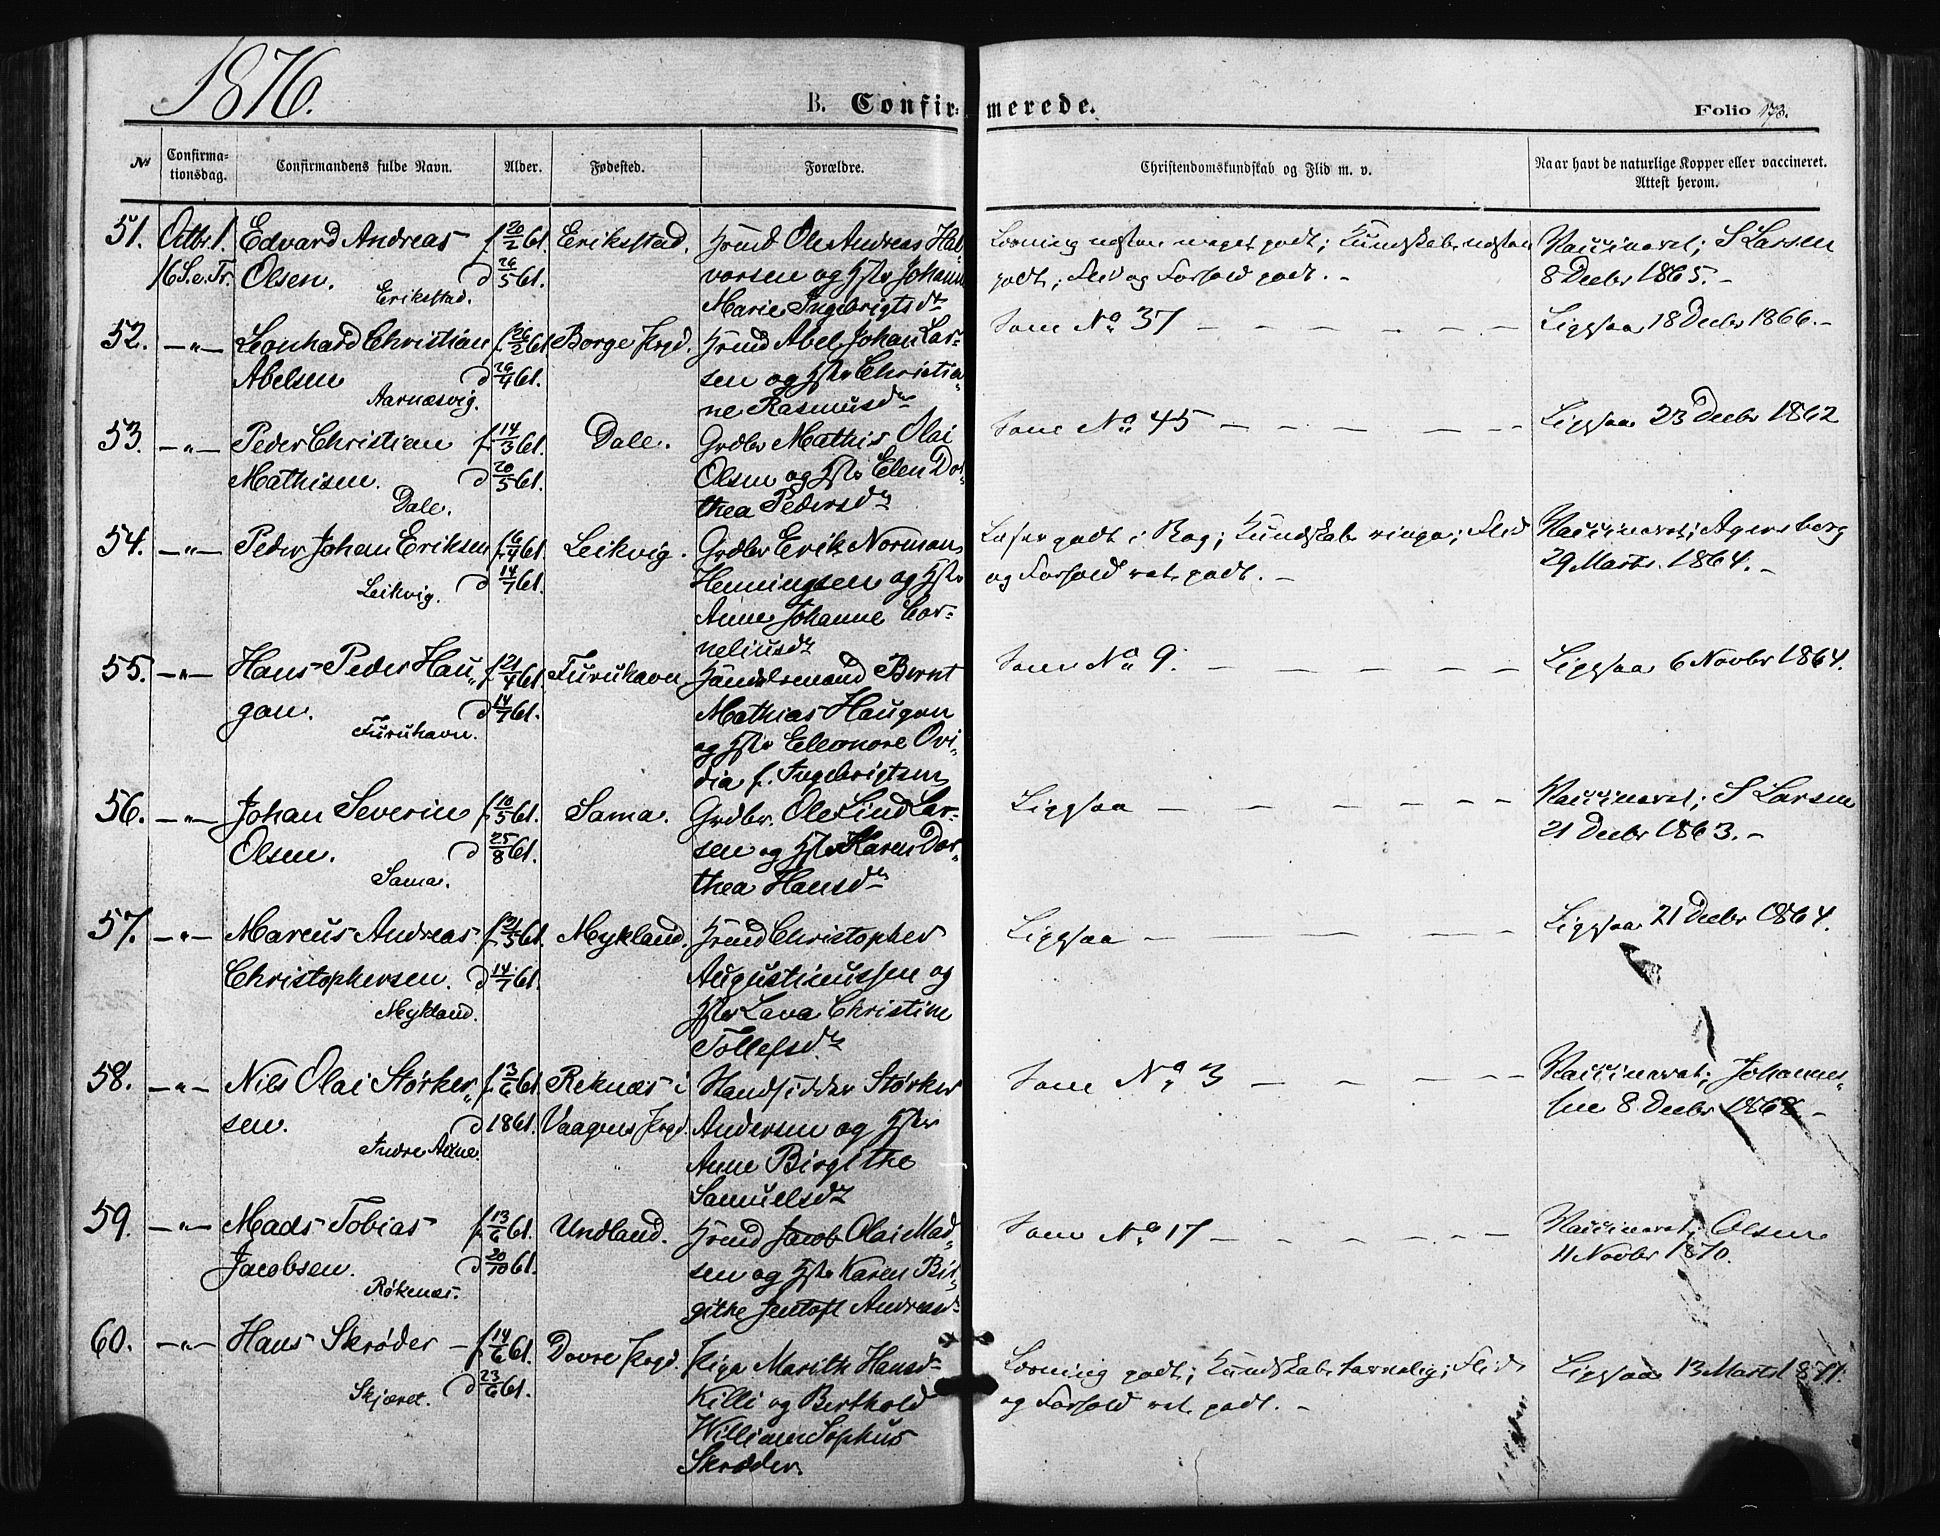 1876.
B. Confirmerede.
Folio 173.
No
Confirmationsdag.
Confirmandens fulde Navn.
Alder.
Fødested.
Forældre.
Christendomskundskab og Flid m. v.
Naar havt de naturlige Kopper eller vaccineret.
Attest herom.
51. Octbr 1. Edvard Andreas f 20/2 61. Eriksstad.
16 S. e. Tr. Olsen. d 26/5 61.
Eriksstad.
Hmd Ole Andreas Hal-
vorsen og Hstr Johan
Marie Ingebrigtsdr
Læsning næsten meget godt; Kundskab næsten
godt; Flid og Forhold godt. –
Vaccineret; S Larsen
8 Decbr 1865. –
52. –„– Leonhard Christian f 26/2 61 Borge Prgd.
Abelsen d 26/4 61.
Aarnæsvig.
Hmd Abel Johan Lar-
sen og Hstr Christia-
ne Rasmusdr
Som No 37 – – –
Ligesaa 18 Decbr 1866. –
53. –„– Peder Christian f 14/3 61. Dale.
Mathisen. d 20/5 61.
Dale.
Grdbr Mathis Olai
Olsen og Hstr Elen Do-
thea Pedersdr
Som No 45 – – –
Ligesaa 23 Decbr 1862
54. –„– Peder Johan Eriksen f 6/4 61. Leikvig.
d 14/7 61.
Leikvig.
Grdbr Erik Norman
Henningsen og Hstr
Anne Johanne Cor-
neliusdr
Læser godt i Bog; Kundskab ringe; Flid
og Forhold ret godt. –
Vaccineret; Agersborg
29 Marts. 1864. –
55. –„– Hans Peder Hau- f 21/4 61. Furuhavn.
gan. d 14/7 61.
Furuhavn.
Handelsmand Bernt
Mathias Haugan
og Hstr Elleonore Ovi-
dia f. Ingebrigtsen
Som No 9. – – –
Ligesaa 6 Novbr 1864.
56. –„– Johan Severin f 10/5 61. Sama.
Olsen. d 25/8 61.
Sama.
Grdbr. Ole Lind Lar-
sen og Hstr Karen Dor-
thea Hansdr
Ligesaa – – –
Vaccineret; S Larsen
21 Decbr 1863. –
57. –„– Marcus Andreas f 21/5 61. Mykland.
Christophersen. d 14/7 61.
Mykland.
Hmd Christopher
Augustinussen og
Hstr Lava Christine
Tollefsdr
Ligesaa – – –
Ligesaa 21 Decbr 1864.
58. –„– Nils Olai Størker- f 3/6 61. Reknæs i
sen. d 1861. Vaagens Prgd.
Indre
Strandsidder Størker
Andersen og Hstr
Anne Birgithe
Samuelsdr
Som No 3 – – –
Vaccineret; Johannes-
sen 8 Decbr 1868 –
59. –„– Mads Tobias f 13/6 61. Undland.
Jacobsen. d 20/10 61.
Røknæs.
Hmd Jacob Olai Mad-
sen og Hstr Karen Bir-
githe Jentoft Andreasdr
Som No 17 – – –
Vaccineret; Olsen
11 Novbr 1870.
60. –„– Hans Skrøder – f 14/6 61. Dovre Prgd.
d 23/6 61.
Skjæret.
Pige Marith Hansdr
Killi og Berthold
William Sophus
Skrøder.
Læsning godt; Kundskab tarvelig; Flid
og Forhold ret godt. –
Ligesaa 13 Marts 1871.